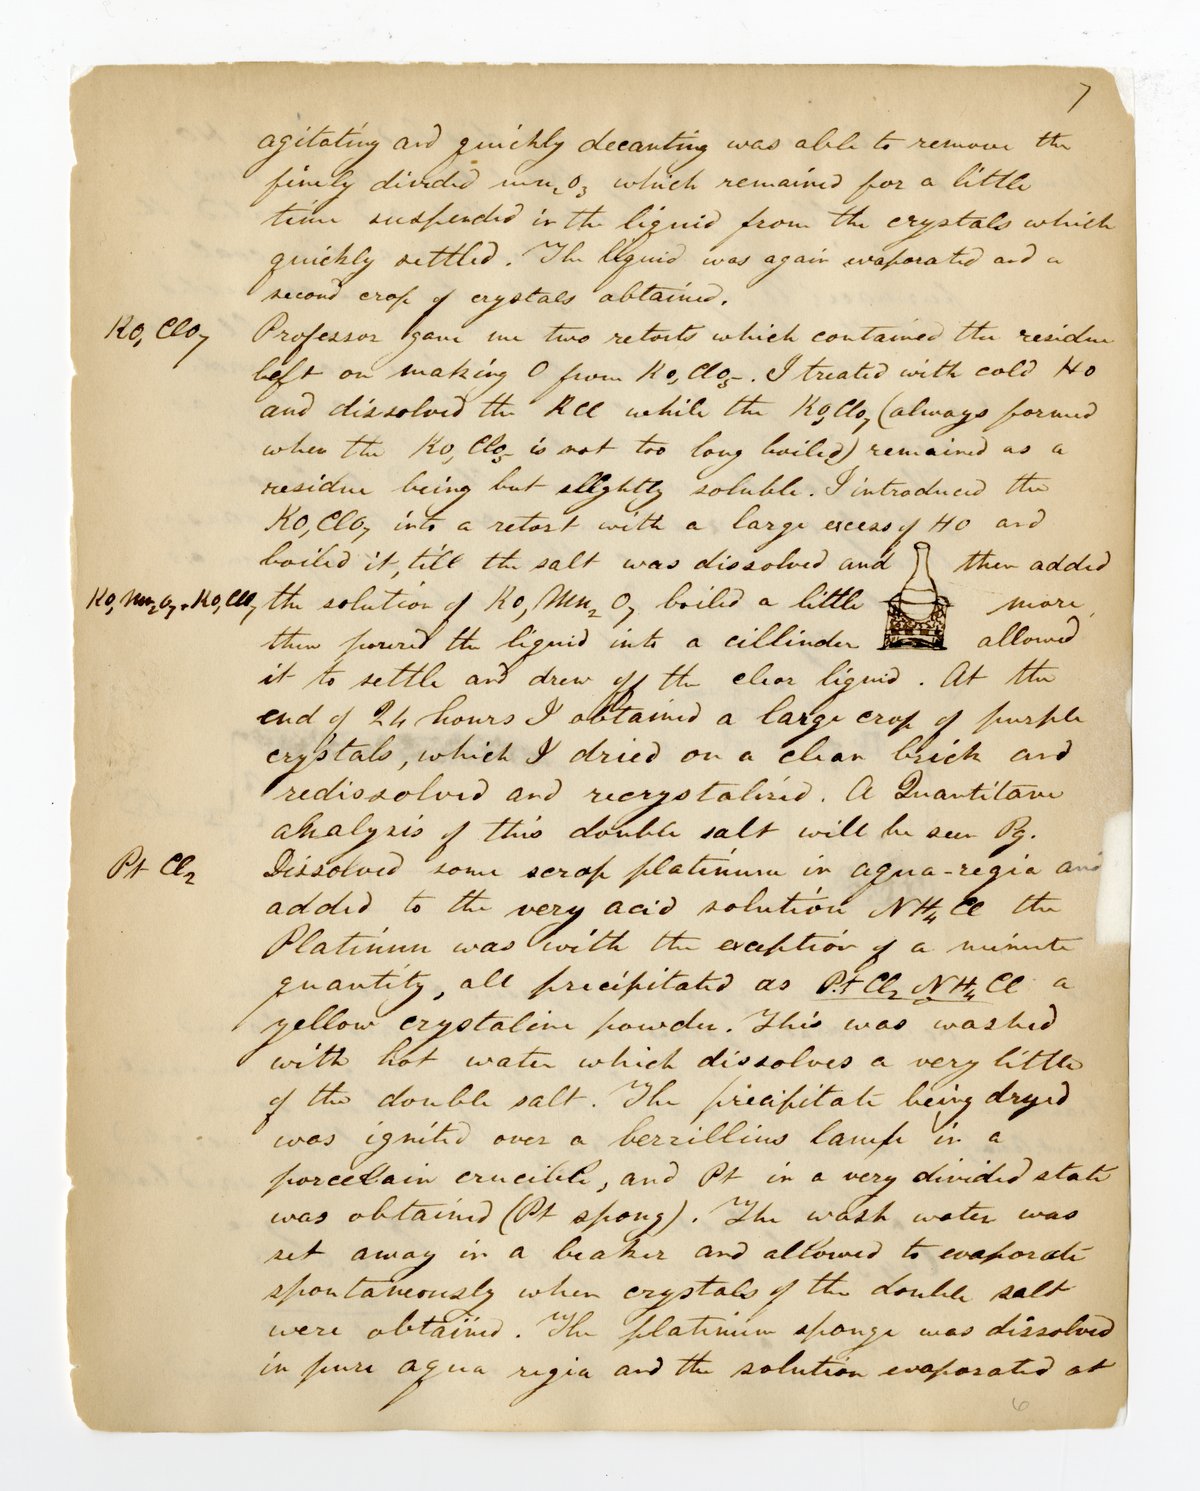 7
agitating and quickly decanting was able to remove the
finely divided mn₂O₃ which remained for a little
time suspended in the liquid from the crystals which
quickly settled. The liquid was again evaporated and a
second crop of crystals obtained.
KO, ClO₇ Professor gave me two retorts which contained the residue
left on making O from KO, ClO₅. I treated with cold HO
and dissolved the KCl while the KO, ClO₇ (always formed
when the KO, ClO₅ is not too long boiled) remained as a
residue being but slightly soluble. I introduced the
KO, ClO₇ into a retort with a large excess of HO and
boiled it, till the salt was dissolved and then added
KO, Mn₂O₇ + KO, ClO₇ the solution of KO, Mn₂ O₇ boiled a little more,
then poured the liquid into a cillinder allowed
it to settle and drew off the clear liquid. At the
end of 24 hours I obtained a large crop of purple
crystals, which I dried on a clean brick and
redissolved and recrystalized. A Quantitave
analysis of this double salt will be seen Pg.
Pt Cl₂ Dissolved some scrap platinum in aqua-regia and
added to the very acid solution NH₄Cl the
Platinum was with the exception of a minute
quantity, all precipitated as Pt Cl₂ NH₄ Cl a
yellow crystaline powder. This was washed
with hot water which dissolves a very little
of the double salt. The precipitate being dryed
was ignited over a berzillius lamp in a
porcelain crucible, and Pt in a very divided state
was obtained (Pt spong). The wash water was
set away in a beaker and allowed to evaporate
spontaneously when crystals of the double salt
were obtained. The platinum sponge was dissolved
in pure aqua regia and the solution evaporated at
6